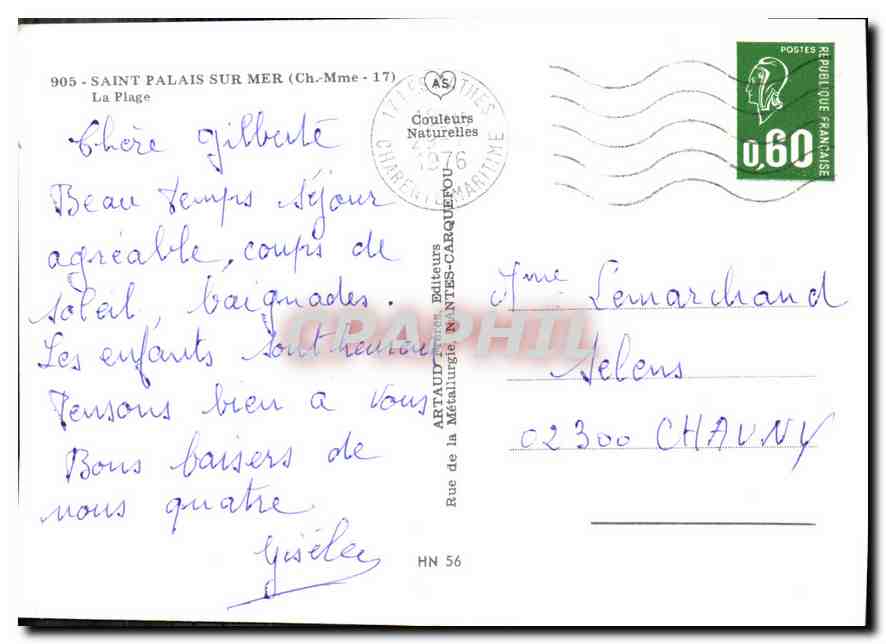 905 - SAINT PALAIS SUR MER (Ch.-Mme - 17)
La Plage
AS
Couleurs
Naturelles
CHARENTE MARITIME
1976
POSTES
REPUBLIQUE FRANÇAISE
0,60
Chère Gilberte
Beau temps séjour
agréable, coups de
soleil, baignades.
Les enfants sont heureux
Pensons bien à vous
Bons baisers de
nous quatre
Gisèle
ARTAUD Frères, Editeurs
Rue de la Métallurgie, NANTES-CARQUEFOU
HN 56
Mme Lemarchand
Selens
02300 CHAUNY
CPAPHIL